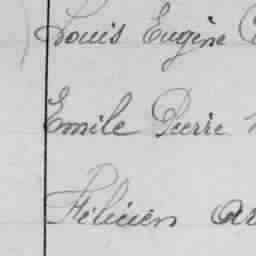 Louis Eugène
Emile Pierre
Félicien